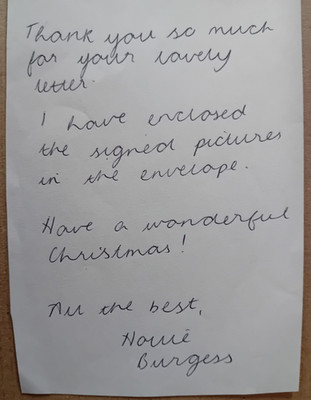 Thank you so much
for your lovely
letter.
I have enclosed
the signed pictures
in the envelope.
Have a wonderful
Christmas!
All the best,
Burgess